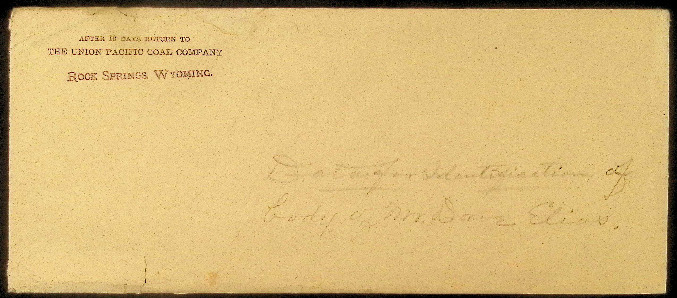 AFTER 10 DAYS RETURN TO
THE UNION PACIFIC COAL COMPANY
ROCK SPRINGS, WYOMING.
Data for Identification of
Body of Mr. Dave Elias.